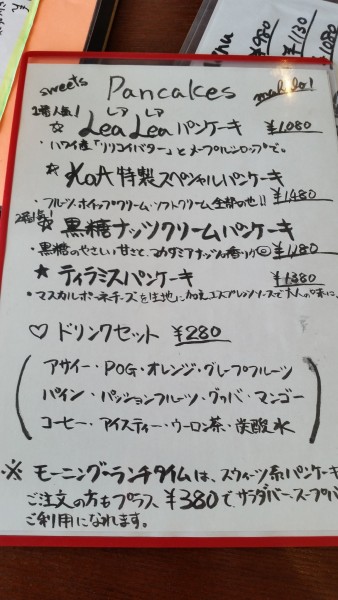 menu ¥980
¥1130
¥1080
sweets Pancakes mahalo!
1番人気!
レア レア
☆ Lea Lea パンケーキ ¥1,080
・ハワイ産「リリコイバター」とメープルシロップで。
★ KoA 特製スペシャルパンケーキ
・フルーツ・ホイップクリーム・ソフトクリーム 全部のせ!! ¥1,480
2番人気!
★ 黒糖ナッツクリームパンケーキ
・黒糖のやさしい甘さと、マカダミアナッツの香り◎ ¥1,180
★ ティラミスパンケーキ ¥1,380
・マスカルポーネチーズを生地に加え、エスプレッソソースで大人の味に。
♡ ドリンクセット ¥280
アサイー・POG・オレンジ・グレープフルーツ
パイン・パッションフルーツ・グァバ・マンゴー
コーヒー・アイスティー・ウーロン茶・炭酸水
※ モーニング・ランチタイムは、スウィーツ系パンケーキ
ご注文の方もプラス ¥380で、サラダバー、スープバ
ご利用になれます。